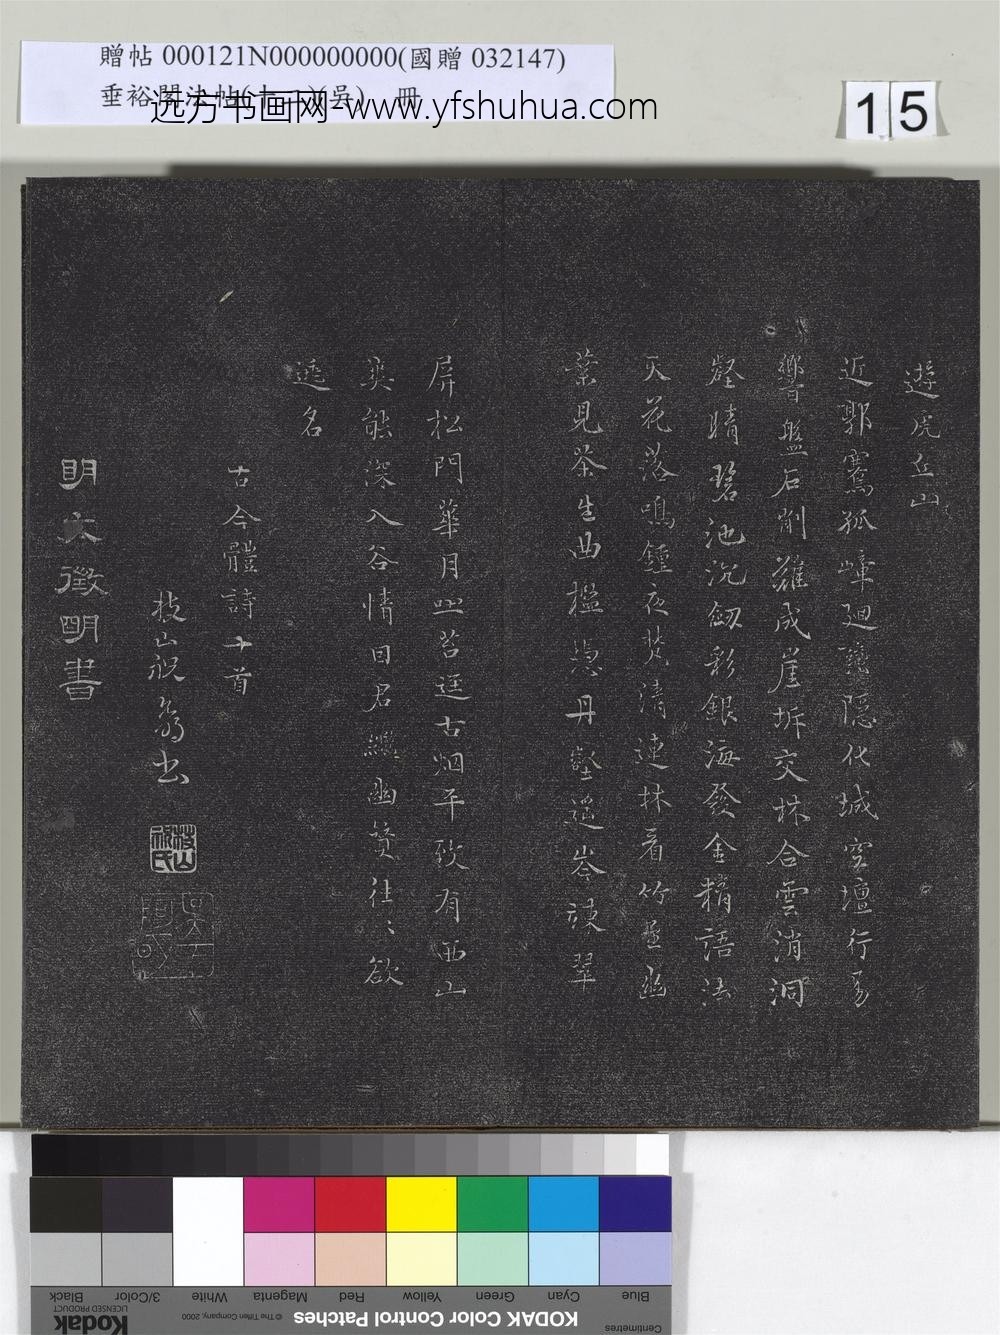 贈帖 000121N000000000(國贈 032147)
垂裕閣法帖(十一)(吳) 冊
远方书画网-www.yfshuhua.com
15
遊虎丘山
近郭騫孤嶂廻隱化城空壇行易
響盤石削難成崖坼交林合雲消洞
壑晴碧池沉劒彩銀海發金精語法
天花落鳴鍾夜梵清連林看竹幽
葉見茶生曲檻憑丹壑遥岑諫翠
屏松門華月照苔逕古烟平致有西山
爽能深入谷情曰君繼幽贊往〻欲
逃名
古今體詩十首
枝山祝翁书
枝山祝氏
明文徵明書
Black
3/Color
White
Magenta
Red
Yellow
Green
Cyan
Blue
LICENSED PRODUCT
Kodak
© The Tiffen Company, 2000
KODAK Color Control Patches
Centimetres